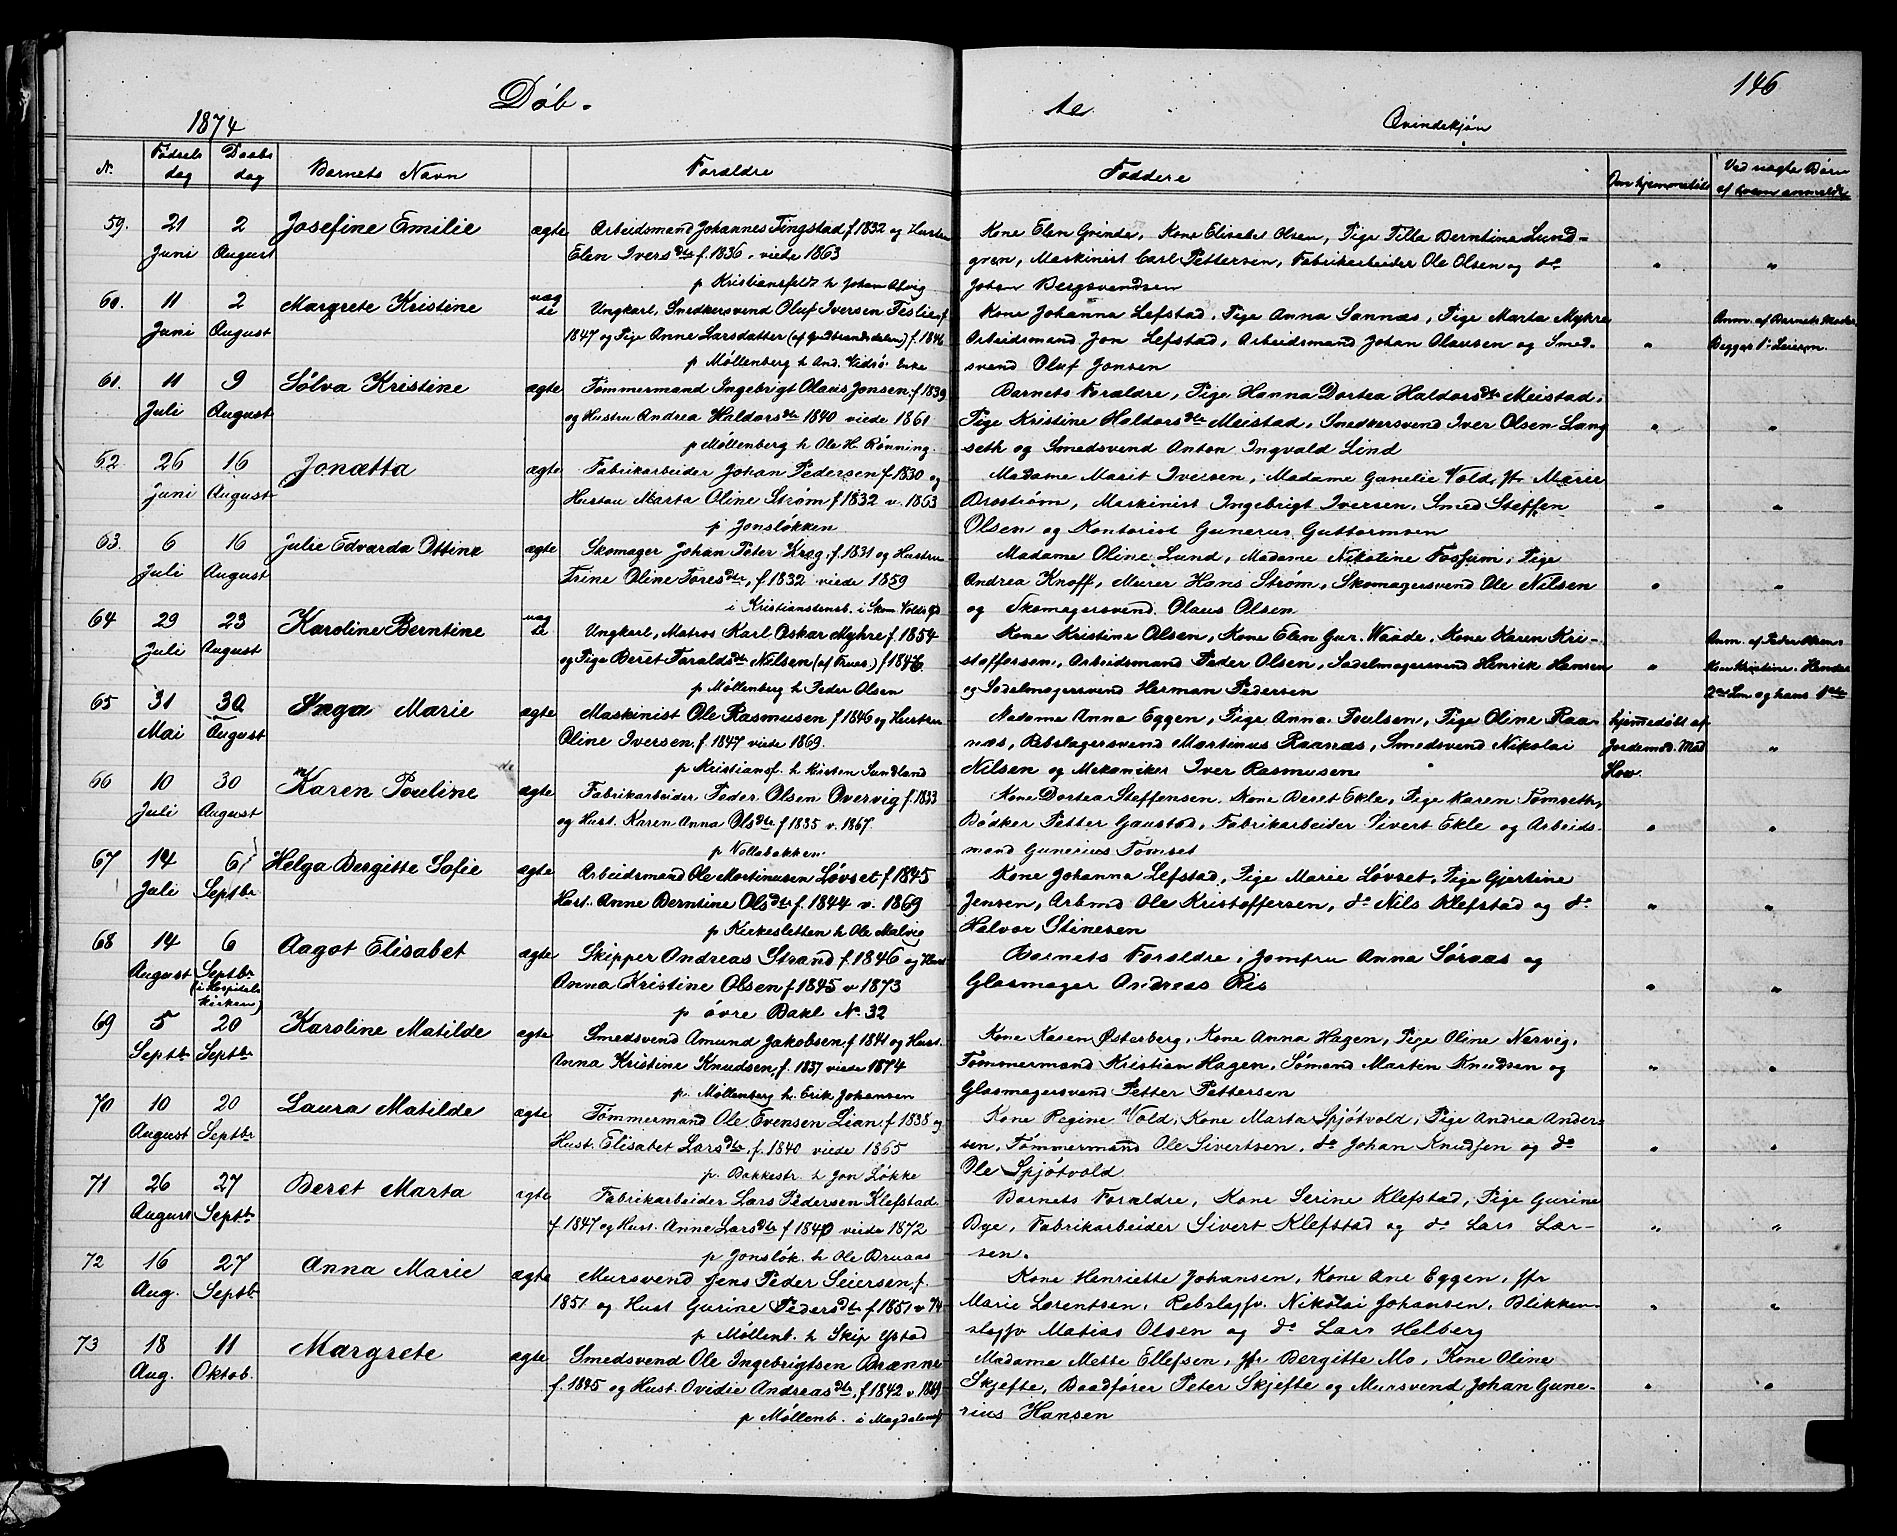 Døb-
te
146
1874
Qvindekjøn
N.
Fødsels
dag
Daabs
dag
Barnets Navn
Forældre
Faddere
Om hjemmedøbt
Ved uægte Børn
af hvem anmeldt
59.
21
Juni
2
August
Josefine Emilie
ægte
Arbeidsmand Johannes Tingstad f 1832 og Hustru
Elen Iversdtr f. 1836, viede 1863
p Kristiansfeldt h Johan Alvig
Kone Elen Grinde, Kone Elisabet Olsen, Pige Tilla Berntine Lund-
gren, Maskinist Carl Pettersen, Fabrikarbeider Ole Olsen og do
Johan Bergsvendsen
"
"
60.
11
Juni
2
August
Margrete Kristine
uæg
te
Ungkarl, Snedkersvend Oluf Iversen Feslie f.
1847 og Pige Anne Larsdatter (af Gudbrandsdalen) f. 1846
p Møllenberg h And. Vadsø Enke
Kone Johanna Lefstad, Pige Anna Sannæs, Pige Marta Myhre
Arbeidsmand Jon Lefstad, Arbeidsmand Johan Olausen og Smed-
svend Oluf Jonsen
"
Anm. af Barnets Moder
Begges 1ste Leierm.
61.
11
Juli
9
August
Sølva Kristine
ægte
Tømmermand Ingebrigt Olaus Jonsen f. 1839
og Hustru Andrea Haldorsdtr 1840 viede 1861
p Møllenberg h Ole H. Rønning.
Barnets Forældre, Pige Hanna Dortea Haldorsdtr Meistad,
Pige Kristine Haldorsdtr Meistad, Snedkersvend Iver Olsen Lang
seth og Smedsvend Anton Ingvald Lind
"
"
62.
26
Juni
16
August
Jonætta
ægte
Fabrikarbeider Johan Pedersen f. 1830 og
Hustru Marta Oline Strøm f 1832 v. 1863
p Jonsløkken
Madame Marit Iversen, Madame Gunelie Vold, Jfr Marie
Brostrøm, Maskinist Ingebrigt Iversen, Smed Steffen
Olsen og Kontorist Gunerus Guttormsen
"
"
63.
6
Juli
16
August
Julie Edvarda Ottine
ægte
Skomager Johan Peter Krog, f. 1831 og Hustru
Trine Oline Toresdtr, f. 1832 viede 1859
i Kristianstensb. i Skom. Volds Gd
Madame Oline Lund, Madame Nikoline Fossum, Pige
Andrea Knoff, Murer Hans Strøm, Skomagersvend Ole Nilsen
og Skomagersvend Olaus Olsen
"
"
64
29
Juli
23
August
Karoline Berntine
uæg
te
Ungkarl, Matros Karl Oskar Myhre f. 1854
og Pige Beret Faraldsdtr Nilsen (af Fruas) f 1846
p Møllenberg h Peder Olsen
Kone Kristine Olsen, Kone Elen Gur. Waade, Kone Karen Kri-
stoffersen, Arbeidsmand Peder Olsen, Sadelmagersvend Henrik Hansen
og Sadelmagersvend Herman Pedersen
"
Anm. af Peder Olsens
Kone Kristine. Hendes
2det Lm og hans 1ste
65
31
Mai
30
August
Inga Marie
ægte
Maskinist Ole Rasmusen f 1846 og Hustru
Oline Iversen, f. 1847 viede 1869.
p Kristiansf. h Kirsten Sundland
Madame Anna Eggen, Pige Anna Poulsen, Pige Oline Raa-
næs, Rebslagersvend Martinus Raanæs, Smedsvend Nikolai
Nilsen og Mekaniker Iver Rasmusen
hjemmedøbt af
Jordemod. Mad
How.
"
66
10
Juli
30
August
Karen Pouline
ægte
Fabrikarbeider Peder Olsen Overvig f. 1833
og Hust. Karen Anna Olsdtr f 1835 v. 1867.
p Vollabakken
Kone Dortea Steffensen, Kone Beret Ekle, Pige Karen Tomseth,
Bødker Petter Gaustad, Fabrikarbeider Sivert Ekle og Arbeids-
mand Gunerius Tomset
"
"
67
14
Juli
6
Septbr
Helga Bergitte Sofie
ægte
Arbeidsmand Ole Martinusen Løvset f 1845
Hust. Anne Berntine Olsdtr f. 1844 v. 1869
p Kirkesletten h Ole Malvig
Kone Johanna Lefstad, Pige Marie Løvset, Pige Gjertine
Jensen, Arbmd Ole Kristoffersen, do Nils Klefstad og do
Halvor Stinesen
"
"
68
14
August
6
Septbr
(i Hospitals
kirken)
Aagot Elisabet
ægte
Skipper Andreas Strand f. 1846 og Hust
Anna Kristine Olsen f 1845 v 1873
p øvre Bakl No 32
Barnets Forældre, Jomfru Anna Søraas og
Glasmager Andreas Ris
"
"
69
5
Septbr
20
Septbr
Karoline Matilde
ægte
Smedsvend Amund Jakobsen, f 1841 og Hust.
Anna Kristine Knudsen, f. 1837 viede 1874
p. Møllenberg h. Erik Johansen
Kone Karen Østerberg, Kone Anna Hagen, Pige Oline Nervig,
Tømmermand Kristian Hagen, Sømand Martin Knudsen og
Glasmagersvend Petter Pettersen
"
"
70
10
August
20
Septbr
Laura Matilde
ægte
Tømmermand Ole Evensen Lian f 1838 og
Hust. Elisabet Larsdtr, f. 1840 viede 1865
p. Bakkestr. h Jon Løkke
Kone Regine Vold, Kone Marta Spjøtvold, Pige Andrea Ander-
sen, Tømmermand Ole Sivertsen, do Johan Knudsen og do
Ole Spjøtvold
"
"
71
26
August
27
Septbr
Beret Marta
ægte
Fabrikarbeider Lars Pedersen Klefstad
f. 1847 og Hust. Anne Larsdtr f 1840 viede 1872
p Jonsløk. h Ole Bruaas
Barnets Forældre, Kone Serine Klefstad, Pige Gurine
Bye, Fabrikarbeider Sivert Klefstad og do Lars Lar-
sen.
"
"
72
16
Aug.
27
Septbr
Anna Marie
ægte
Mursvend Jens Peder Seiersen, f.
1851 og Hust Gurine Pedersdtr f 1851 v 74
p Møllenb. h Skip Ystad
Kone Henriette Johansen, Kone Ane Eggen, Jfr
Marie Lorentsen, Rebslagsv. Nikolai Johansen, Blikken-
slagsv Matias Olsen og do Lars Helberg
"
"
73
18
Aug.
11
Oktob.
Margrete
ægte
Smedsvend Ole Ingebrigtsen Brænne
f. 1845 og Hust. Ovidie Andreasdtr, f 1842 v. 1869
p Møllenb. i Magdalensg
Madame Mette Ellefsen, Jfr Bergitte Mo, Kone Oline
Skjefte, Baadfører Peter Skjefte og Mursvend Johan Gune-
rius Hansen
"
"